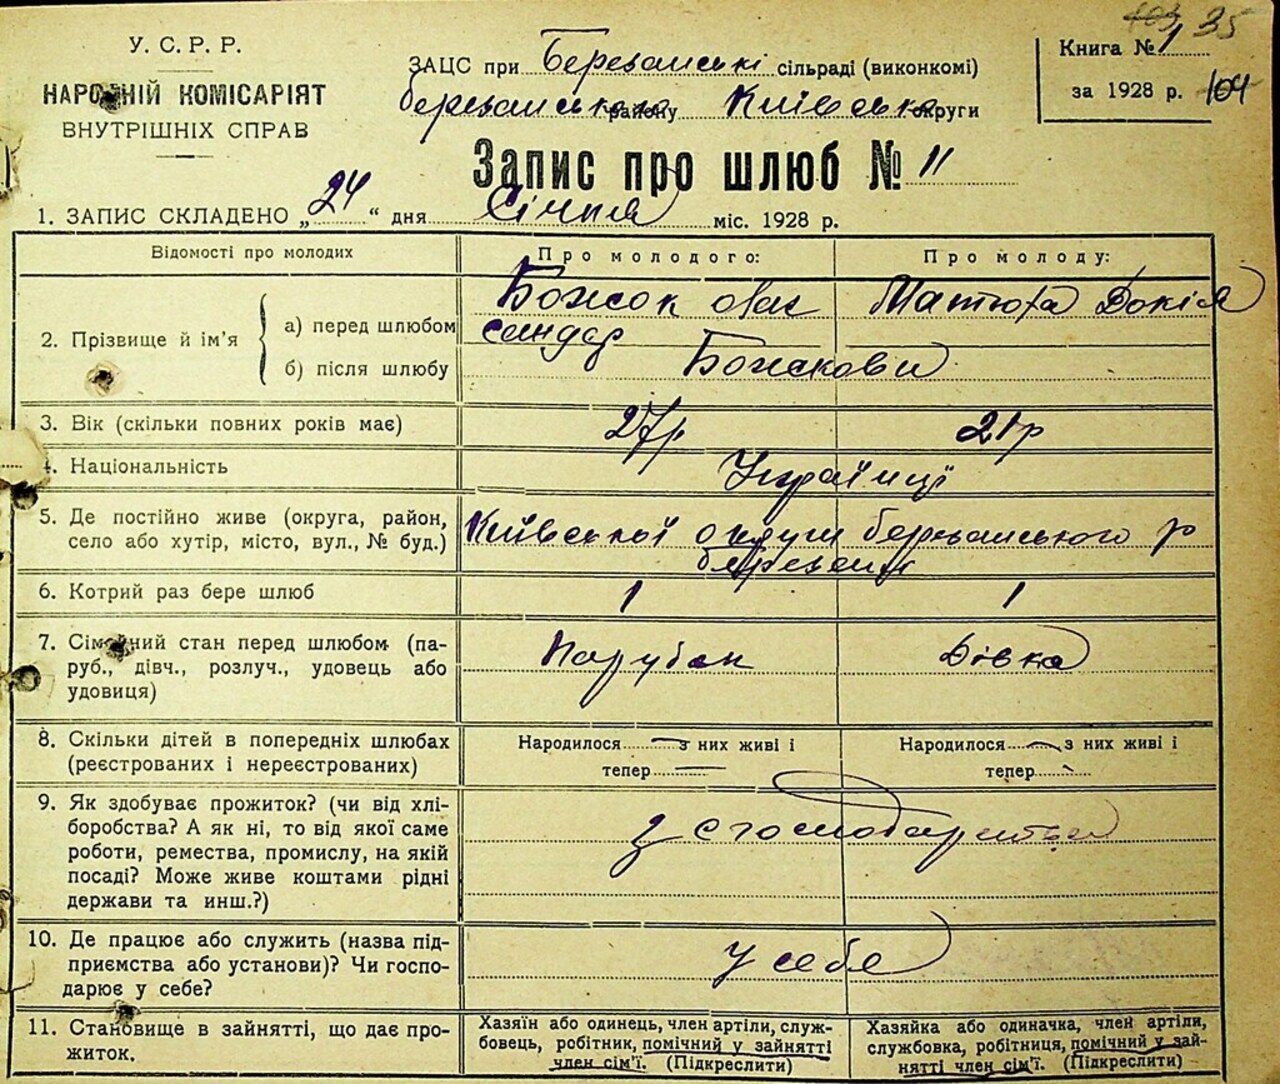 У. С. Р. Р.
НАРОДНІЙ КОМІСАРІЯТ
ВНУТРІШНІХ СПРАВ
ЗАЦС при Березанські сільраді (виконкомі)
району Київська округи
Книга № 1
за 1928 р.
35
104
Запис про шлюб № 11
1. ЗАПИС СКЛАДЕНО „24“ дня Січня міс. 1928 р.
Відомості про молодих
Про молодого:
Про молоду:
2. Прізвище й ім'я
а) перед шлюбом
Божок олек
сандер
Матюха Докія
б) після шлюбу
Божкови
3. Вік (скільки повних років має)
27р
21р
4. Національність
Українці
5. Де постійно живе (округа, район,
село або хутір, місто, вул., № буд.)
Київської округи березанського р
6. Котрий раз бере шлюб
1
1
7. Сімейний стан перед шлюбом (па-
руб., дівч., розлуч., удовець або
удовиця)
Парубок
Дівка
8. Скільки дітей в попередніх шлюбах
(реєстрованих і нереєстрованих)
Народилося — з них живі і
тепер —
Народилося — з них живі і
тепер —
9. Як здобуває прожиток? (чи від хлі-
боробства? А як ні, то від якої саме
роботи, ремества, промислу, на якій
посаді? Може живе коштами рідні
держави та инш.?)
10. Де працює або служить (назва під-
приємства або установи)? Чи госпо-
дарює у себе?
у себе
11. Становище в зайнятті, що дає про-
житок.
Хазяїн або одинець, член артіли, служ-
бовець, робітник, помічний у зайнятті
член сім'ї. (Підкреслити)
Хазяйка або одиначка, член артіли,
службовка, робітниця, помічний у зай-
нятті член сім'ї. (Підкреслити)